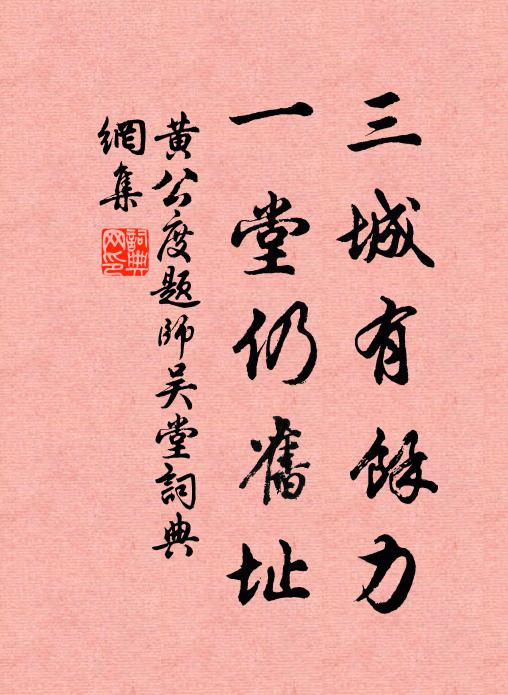 三城有餘力
一堂仍舊址
黄公度题師吴堂詞典
網集
詞典
网印